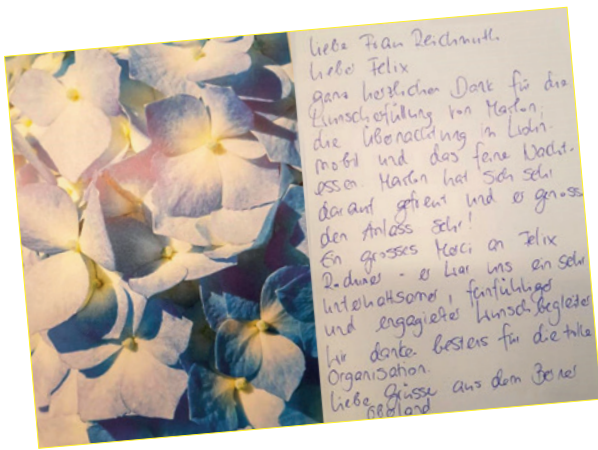 Liebe Frau Reichmuth
Lieber Felix
ganz herzlichen Dank für die
Wunscherfüllung von Marlon,
die Übernachtung im Wohn-
mobil und das feine Nacht-
essen. Marlon hat sich sehr
darauf gefreut und er genoss
den Anlass sehr!
Ein grosses Merci an Felix
- er war uns ein sehr
unterhaltsamer, feinfühliger
und engagierter Wunschbegleiter
Wir danken bestens für die tolle
Organisation.
Liebe Grüsse aus dem Berner
Oberland